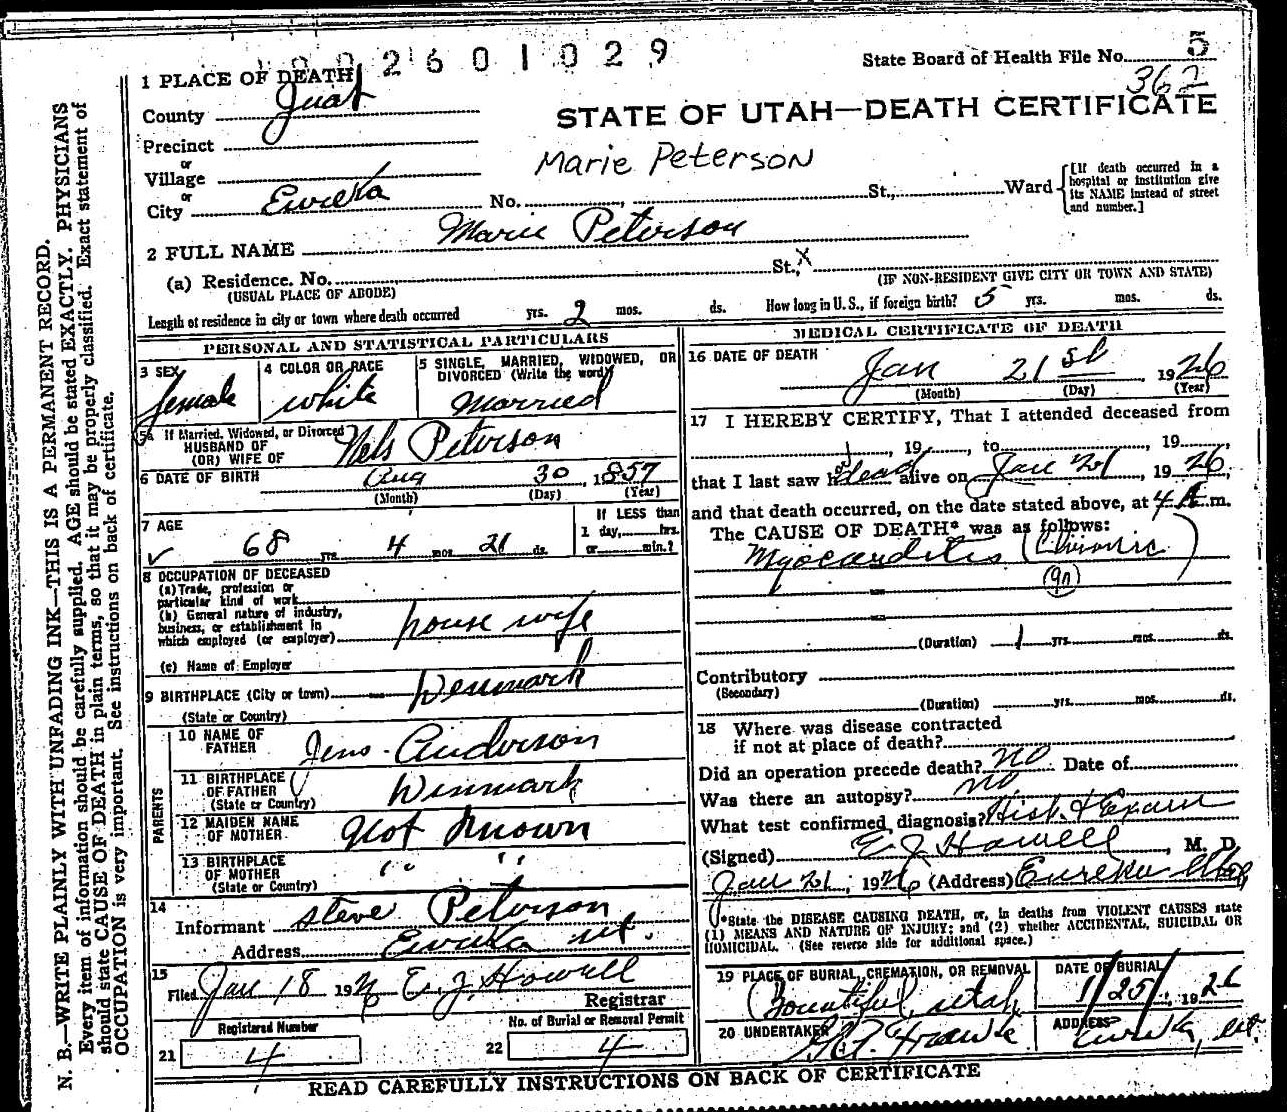 2601029
State Board of Health File No. 5
362
1 PLACE OF DEATH
County Juab
STATE OF UTAH—DEATH CERTIFICATE
Precinct
or
Village
Marie Peterson
or
City Eureka No. , St., Ward
[If death occurred in a hospital or institution give its NAME instead of street and number.]
2 FULL NAME Marie Peterson
(a) Residence. No. St., X
(USUAL PLACE OF ABODE) (IF NON-RESIDENT GIVE CITY OR TOWN AND STATE)
Length of residence in city or town where death occurred yrs. 2 mos. ds. How long in U.S., if foreign birth? 5 yrs. mos. ds.
PERSONAL AND STATISTICAL PARTICULARS
3 SEX female
4 COLOR OR RACE white
5 SINGLE, MARRIED, WIDOWED, OR DIVORCED (Write the word) Married
5a If Married, Widowed, or Divorced
HUSBAND OF
(OR) WIFE OF Nels Peterson
6 DATE OF BIRTH Aug 30, 1857
(Month) (Day) (Year)
7 AGE 68 yrs. 4 mos. 21 ds.
If LESS than
1 day, hrs.
or min.?
8 OCCUPATION OF DECEASED
(a) Trade, profession or
particular kind of work
(b) General nature of industry,
business, or establishment in
which employed (or employer) house wife
(c) Name of Employer
9 BIRTHPLACE (City or town) Denmark
(State or Country)
PARENTS
10 NAME OF FATHER Jens Anderson
11 BIRTHPLACE OF FATHER (State or Country) Denmark
12 MAIDEN NAME OF MOTHER Not Known
13 BIRTHPLACE OF MOTHER (State or Country) " "
14
Informant Steve Peterson
Address Eureka Ut.
15
Filed Jan 18 192 E. J. Howell
Registrar
Registered Number
21 4
No. of Burial or Removal Permit
22 4
MEDICAL CERTIFICATE OF DEATH
16 DATE OF DEATH Jan 21st, 1926
(Month) (Day) (Year)
17 I HEREBY CERTIFY, That I attended deceased from
, 19 , to , 19 ,
that I last saw h dead alive on Jan 21, 1926,
and that death occurred, on the date stated above, at 4 A.m.
The CAUSE OF DEATH* was as follows:
Myocarditis (Chronic)
(90)
(Duration) 1 yrs. mos. ds.
Contributory
(Secondary)
(Duration) yrs. mos. ds.
18 Where was disease contracted
if not at place of death?
Did an operation precede death? No Date of
Was there an autopsy? No
What test confirmed diagnosis? Hist. & Exam
(Signed) E J Howell, M. D.
Jan 21, 1926 (Address) Eureka Utah
*State the DISEASE CAUSING DEATH, or, in deaths from VIOLENT CAUSES state
(1) MEANS AND NATURE OF INJURY; and (2) whether ACCIDENTAL, SUICIDAL OR
HOMICIDAL. (See reverse side for additional space.)
19 PLACE OF BURIAL, CREMATION, OR REMOVAL
Bountiful, Utah
DATE OF BURIAL
1/25/, 1926
20 UNDERTAKER
ADDRESS
Eureka, Ut.
READ CAREFULLY INSTRUCTIONS ON BACK OF CERTIFICATE
N. B.—WRITE PLAINLY WITH UNFADING INK—THIS IS A PERMANENT RECORD.
Every item of information should be carefully supplied. AGE should be stated EXACTLY. PHYSICIANS
should state CAUSE OF DEATH in plain terms, so that it may be properly classified. Exact statement of
OCCUPATION is very important. See instructions on back of certificate.